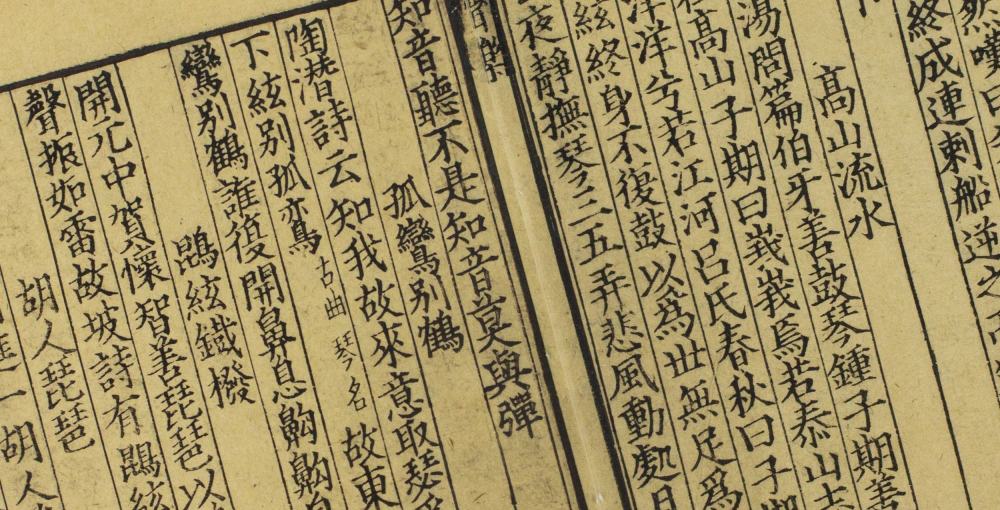 然嘆曰
終成連刺船逆之而
高山流水
湯問篇伯牙善鼓琴鍾子期善
高山子期曰峩峩焉若泰山志
洋洋兮若江河呂氏春秋曰子期
絃終身不復鼓以爲世無足爲
夜靜撫琴三五弄悲風動處月
知音聽不是知音莫與彈
孤鸞别鶴
陶潜詩云知我故來意取琴爲
下絃别孤鸞古曲琴名故東
鸞别鶴誰復開鼻息齁齁自
鵾絃鐵撥
開元中賀懷智善琵琶以
聲振如雷故坡詩有鵾絃
胡人琵琶
一胡人